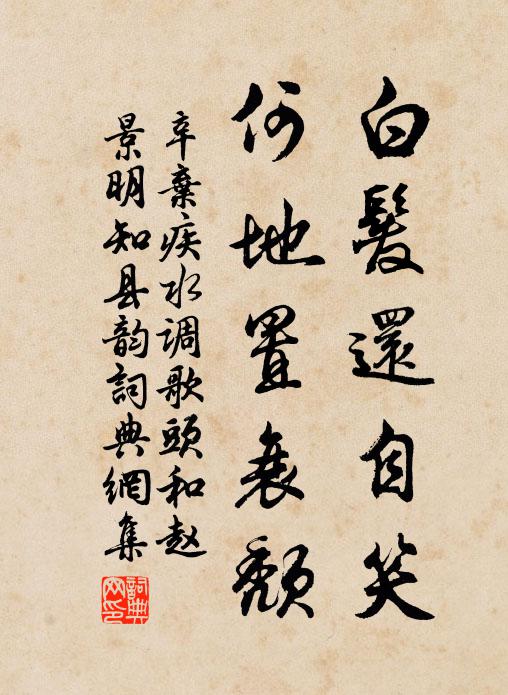 白髮還自笑
何地置衰頹
辛棄疾水调歌頭和赵
景明知县韵詞典網集
詞典网印